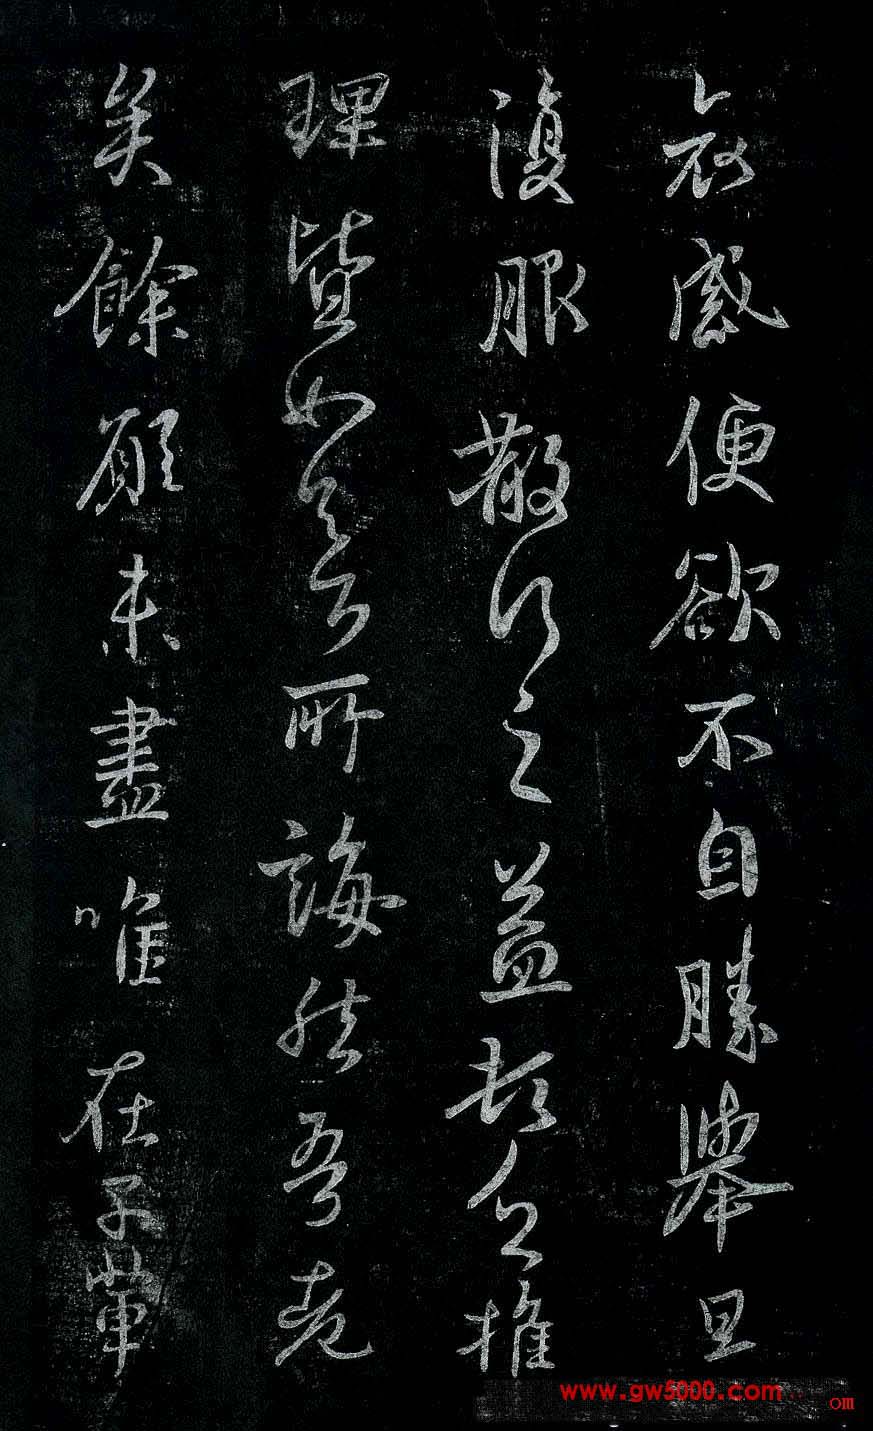 哀感便欲不自勝舉旦
復服散行之益頓乏推
理皆如足下所誨然吾老
矣餘願未盡唯在子輩
www.gw5000.com
om